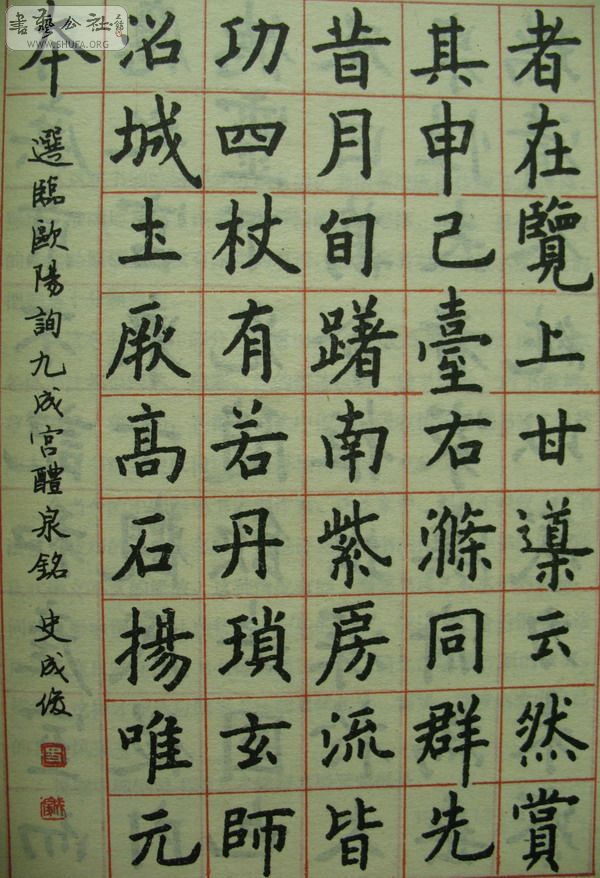 書藝公社
WWW.SHUFA.ORG
者在覽上甘云然賞
其申己臺右滌同群先
昔月旬躇南紫房流皆
功四杖有若丹瑣玄師
沼城圡厥髙石揚唯元
本
選臨歐陽詢九成宮醴泉銘 史成俊